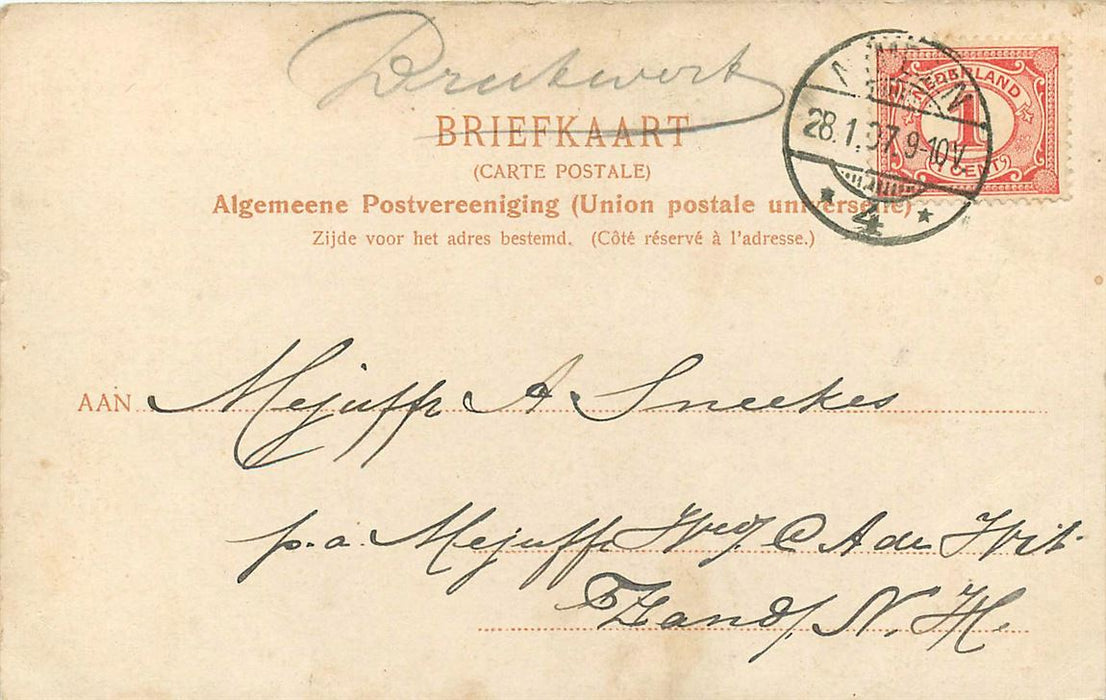 Drukwerk
BRIEFKAART
(CARTE POSTALE)
Algemeene Postvereeniging (Union postale universelle)
Zijde voor het adres bestemd. (Côté réservé à l'adresse.)
NEDERLAND
1
CENT
28.1.07 9-10V.
4
AAN Mejuffr A Sneekes
p.a. Mejuffr Wed. C A de Wit
't Zand, N. H.